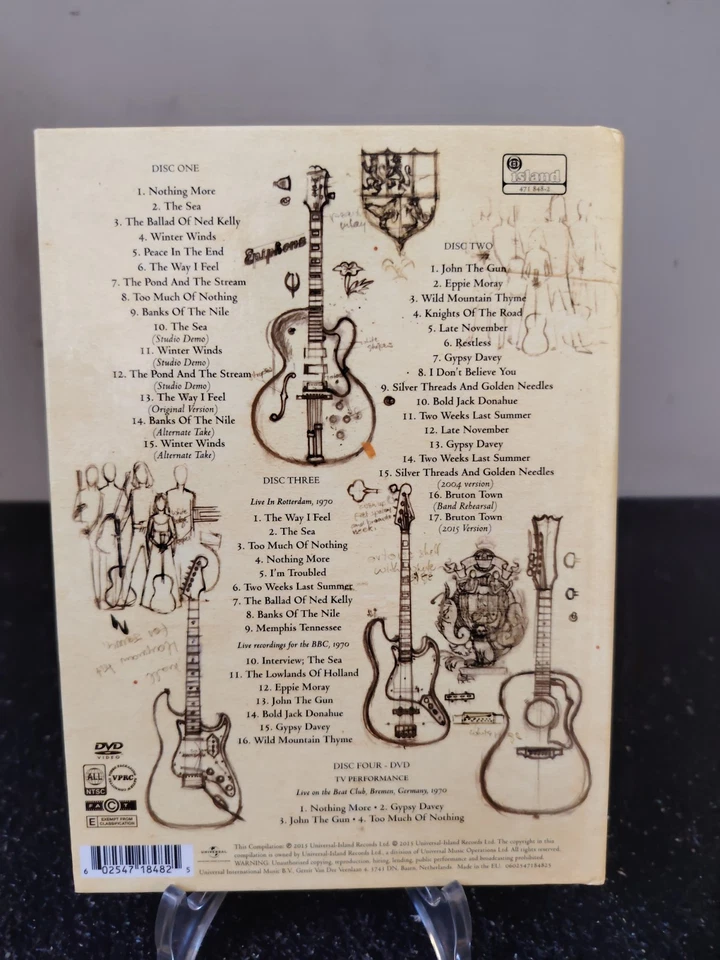 DISC ONE
1. Nothing More
2. The Sea
3. The Ballad Of Ned Kelly
4. Winter Winds
5. Peace In The End
6. The Way I Feel
7. The Pond And The Stream
8. Too Much Of Nothing
9. Banks Of The Nile
10. The Sea
(Studio Demo)
11. Winter Winds
(Studio Demo)
12. The Pond And The Stream
(Studio Demo)
13. The Way I Feel
(Original Version)
14. Banks Of The Nile
(Alternate Take)
15. Winter Winds
(Alternate Take)
Epiphone
island
471 848-2
DISC TWO
1. John The Gun
2. Eppie Moray
3. Wild Mountain Thyme
4. Knights Of The Road
5. Late November
6. Restless
7. Gypsy Davey
8. I Don't Believe You
9. Silver Threads And Golden Needles
10. Bold Jack Donahue
11. Two Weeks Last Summer
12. Late November
13. Gypsy Davey
14. Two Weeks Last Summer
15. Silver Threads And Golden Needles
(2004 version)
16. Bruton Town
(Band Rehearsal)
17. Bruton Town
(2015 Version)
DISC THREE
Live In Rotterdam, 1970
1. The Way I Feel
2. The Sea
3. Too Much Of Nothing
4. Nothing More
5. I'm Troubled
6. Two Weeks Last Summer
7. The Ballad Of Ned Kelly
8. Banks Of The Nile
9. Memphis Tennessee
Live recordings for the BBC, 1970
10. Interview; The Sea
11. The Lowlands Of Holland
12. Eppie Moray
13. John The Gun
14. Bold Jack Donahue
15. Gypsy Davey
16. Wild Mountain Thyme
DISC FOUR - DVD
TV PERFORMANCE
Live on the Beat Club, Bremen, Germany, 1970
1. Nothing More • 2. Gypsy Davey
3. John The Gun • 4. Too Much Of Nothing
DVD
VIDEO
ALL
NTSC
VPRC
FACT
E EXEMPT FROM CLASSIFICATION
6 02547 18482 5
UNIVERSAL
This Compilation ℗ 2015 Universal-Island Records Ltd. © 2015 Universal-Island Records Ltd. The copyright in this
compilation is owned by Universal-Island Records Ltd., a division of Universal Music Operations Ltd. All rights reserved.
WARNING: Unauthorised copying, reproduction, hiring, lending, public performance and broadcasting prohibited.
Universal International Music B.V. Gerrit Van Der Veenlaan 4, 3743 DN, Baarn, Netherlands. Made in the EU. 0602547184825